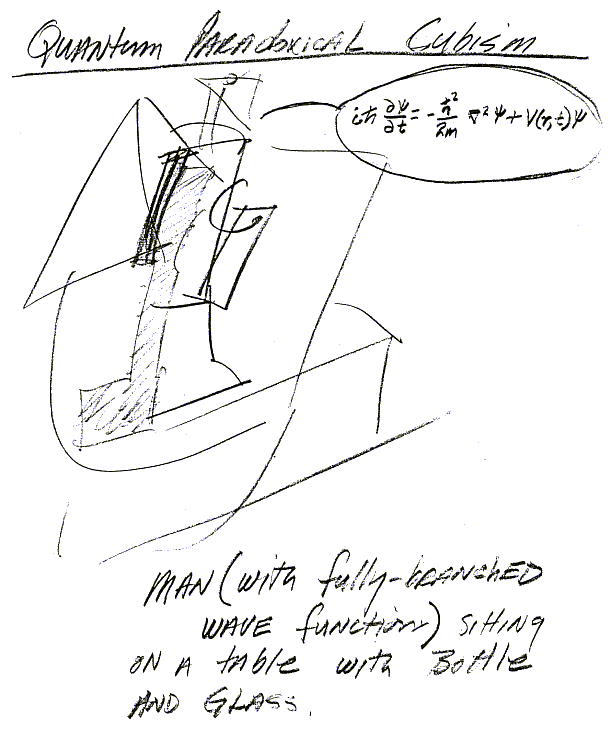 Quantum Paradoxical Cubism
iħ ∂ψ/∂t = -ħ²/2m ∇²ψ + V(r,t)ψ
MAN (with fully-branched
wave function) sitting
on a table with Bottle
AND GLASS.